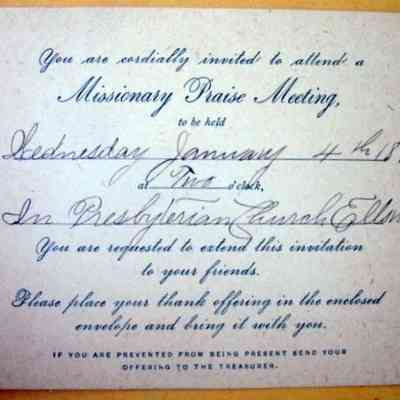 You are cordially invited to attend a
Missionary Praise Meeting,
to be held
Wednesday January 4th 18
at Two o'clock,
In Presbyterian Church
You are requested to extend this invitation
to your friends.
Please place your thank offering in the enclosed
envelope and bring it with you.
IF YOU ARE PREVENTED FROM BEING PRESENT SEND YOUR
OFFERING TO THE TREASURER.